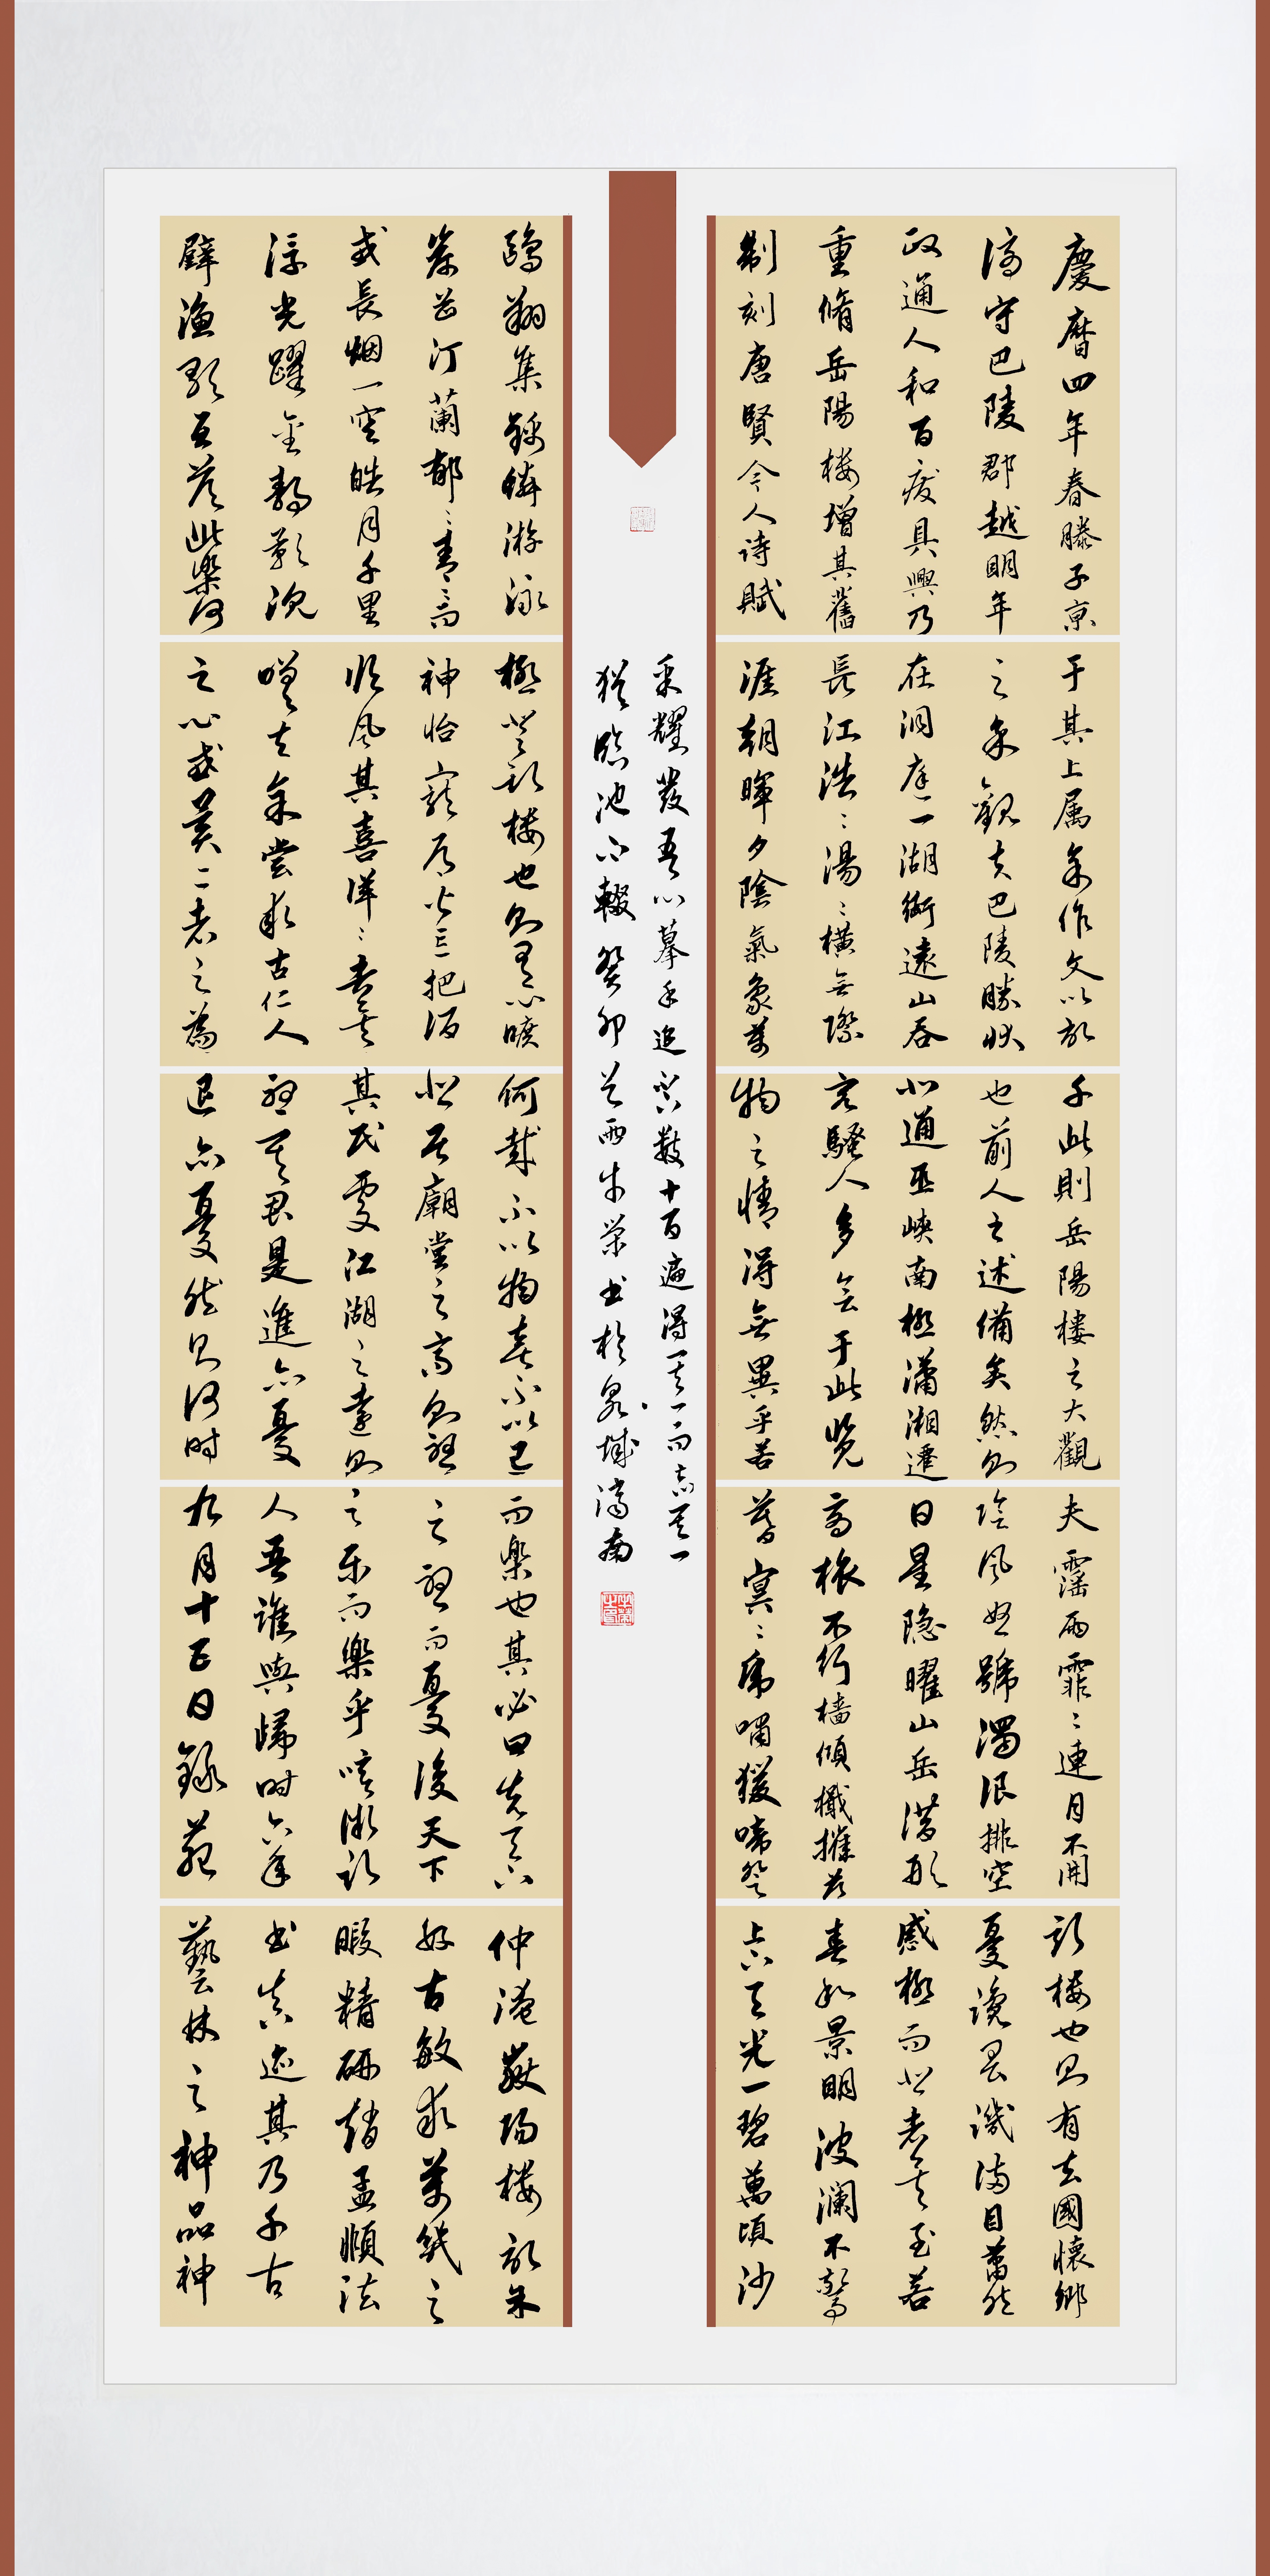 慶曆四年春滕子京
謫守巴陵郡越明年
政通人和百廢具興乃
重脩岳陽樓增其舊
制刻唐賢今人詩賦
于其上属余作文以記
之余觀夫巴陵勝狀
在洞庭一湖銜遠山吞
長江浩〻湯〻橫無際
涯朝暉夕陰氣象萬
千此則岳陽樓之大觀
也前人之述備矣然則
北通巫峽南極瀟湘遷
客騷人多會于此覽
物之情得無異乎若
夫霪雨霏〻連月不開
陰風怒號濁浪排空
日星隐曜山岳潛形
商旅不行檣傾檝摧薄
暮冥〻虎嘯猨啼登
斯樓也則有去國懷鄉
憂讒畏譏滿目蕭然
感極而悲者矣至若
春和景明波瀾不驚
上下天光一碧萬頃沙
鷗翔集錦鱗游泳
岸芷汀蘭郁〻青〻而
或長烟一空皓月千里
浮光躍金靜影沉
璧漁歌互答此樂何
極登斯樓也則有心曠
神怡寵辱皆忘把酒
臨風其喜洋〻者矣
嗟夫余嘗求古仁人
之心或異二者之為
何哉不以物喜不以己
悲居廟堂之高則憂
其民處江湖之遠則
憂其君是進亦憂
退亦憂然則何時
而樂也其必曰先天下
之憂而憂後天下
之樂而樂乎噫微斯
人吾誰與歸時六年
九月十五日錄范
仲淹嶽陽樓記朱
好古敏求萬幾之
暇精研趙孟頫法
書真迹其乃千古
藝林之神品神
采耀發吾心摹手追習數十百遍得其一而忘其一
猶臨池不輟癸卯 牛榮书於泉城濟南